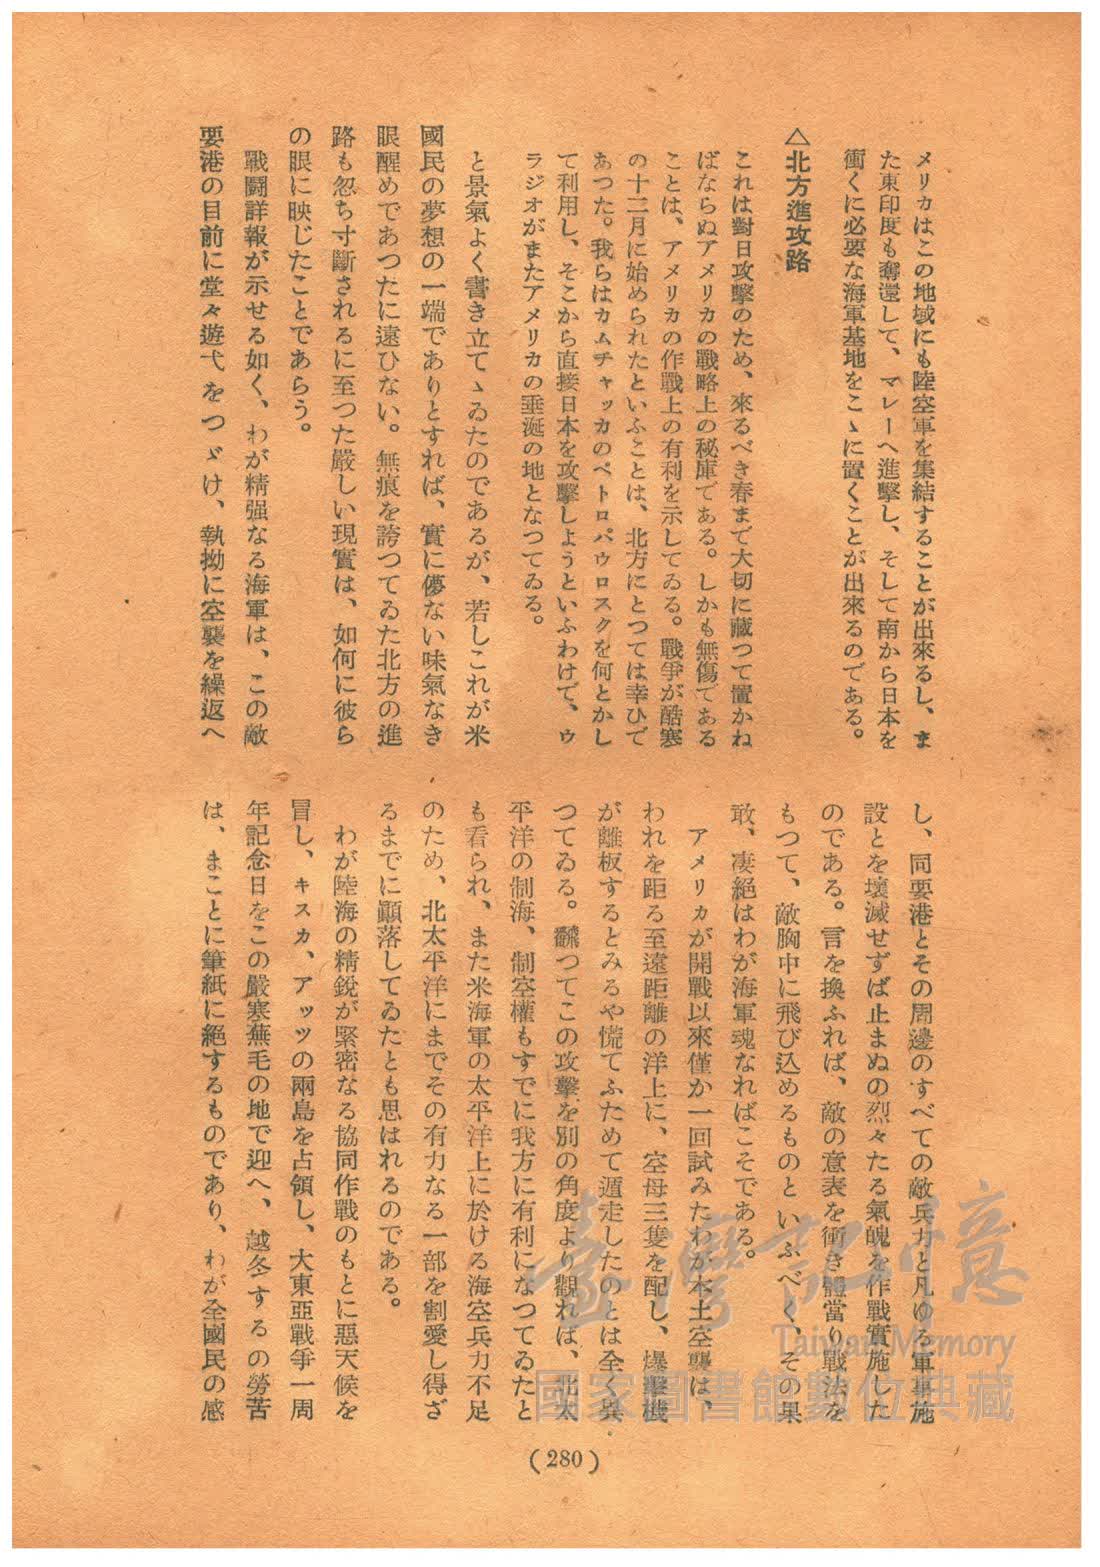 メリカはこの地域にも陸空軍を集結することが出來るし、ま
た東印度も奪還して、マレーへ進擊し、そして南から日本を
衝くに必要な海軍基地をこゝに置くことが出來るのである。
△北方進攻路
これは對日攻擊のため、來るべき春まで大切に藏つて置かね
ばならぬアメリカの戰略上の秘庫である。しかも無傷である
ことは、アメリカの作戰上の有利を示してゐる。戰爭が酷寒
の十二月に始められたといふことは、北方にとつては幸ひで
あつた。我らはカムチャッカのペトロパウロスクを何とかし
て利用し、そこから直接日本を攻擊しようといふわけで、ウ
ラジオがまたアメリカの垂涎の地となつてゐる。
と景氣よく書き立てゝゐたのであるが、若しこれが米
國民の夢想の一端でありとすれば、實に儚ない味氣なき
眼醒めであつたに違ひない。無痕を誇つてゐた北方の進
路も忽ち寸斷されるに至つた嚴しい現實は、如何に彼ら
の眼に映じたことであらう。
戰鬪詳報が示せる如く、わが精强なる海軍は、この敵
要港の目前に堂々遊弋をつゞけ、執拗に空襲を繰返へ
し、同要港とその周邊のすべての敵兵力と凡ゆる軍事施
設とを壞滅せずば止まぬの烈々たる氣魄を作戰實施した
のである。言を換ふれば、敵の意表を衝き體當り戰法を
もつて、敵胸中に飛び込めるものといふべく、その果
敢、凄絕はわが海軍魂なればこそである。
アメリカが開戰以來僅か一回試みたわが本土空襲は、
われを距る至遠距離の洋上に、空母三隻を配し、爆擊機
が離板するとみるや慌てふためて遁走したのとは全く異
つてゐる。飜つてこの攻擊を別の角度より觀れば、北太
平洋の制海、制空權もすでに我方に有利になつてゐたと
も看られ、また米海軍の太平洋上に於ける海空兵力不足
のため、北太平洋にまでその有力なる一部を割愛し得ざ
るまでに顚落してゐたとも思はれるのである。
わが陸海の精銳が緊密なる協同作戰のもとに惡天候を
冒し、キスカ、アッツの兩島を占領し、大東亞戰爭一周
年記念日をこの嚴寒蕪毛の地で迎へ、越冬するの勞苦
は、まことに筆紙に絕するものであり、わが全國民の感
(280)
臺灣記憶
Taiwan Memory
國家圖書館數位典藏